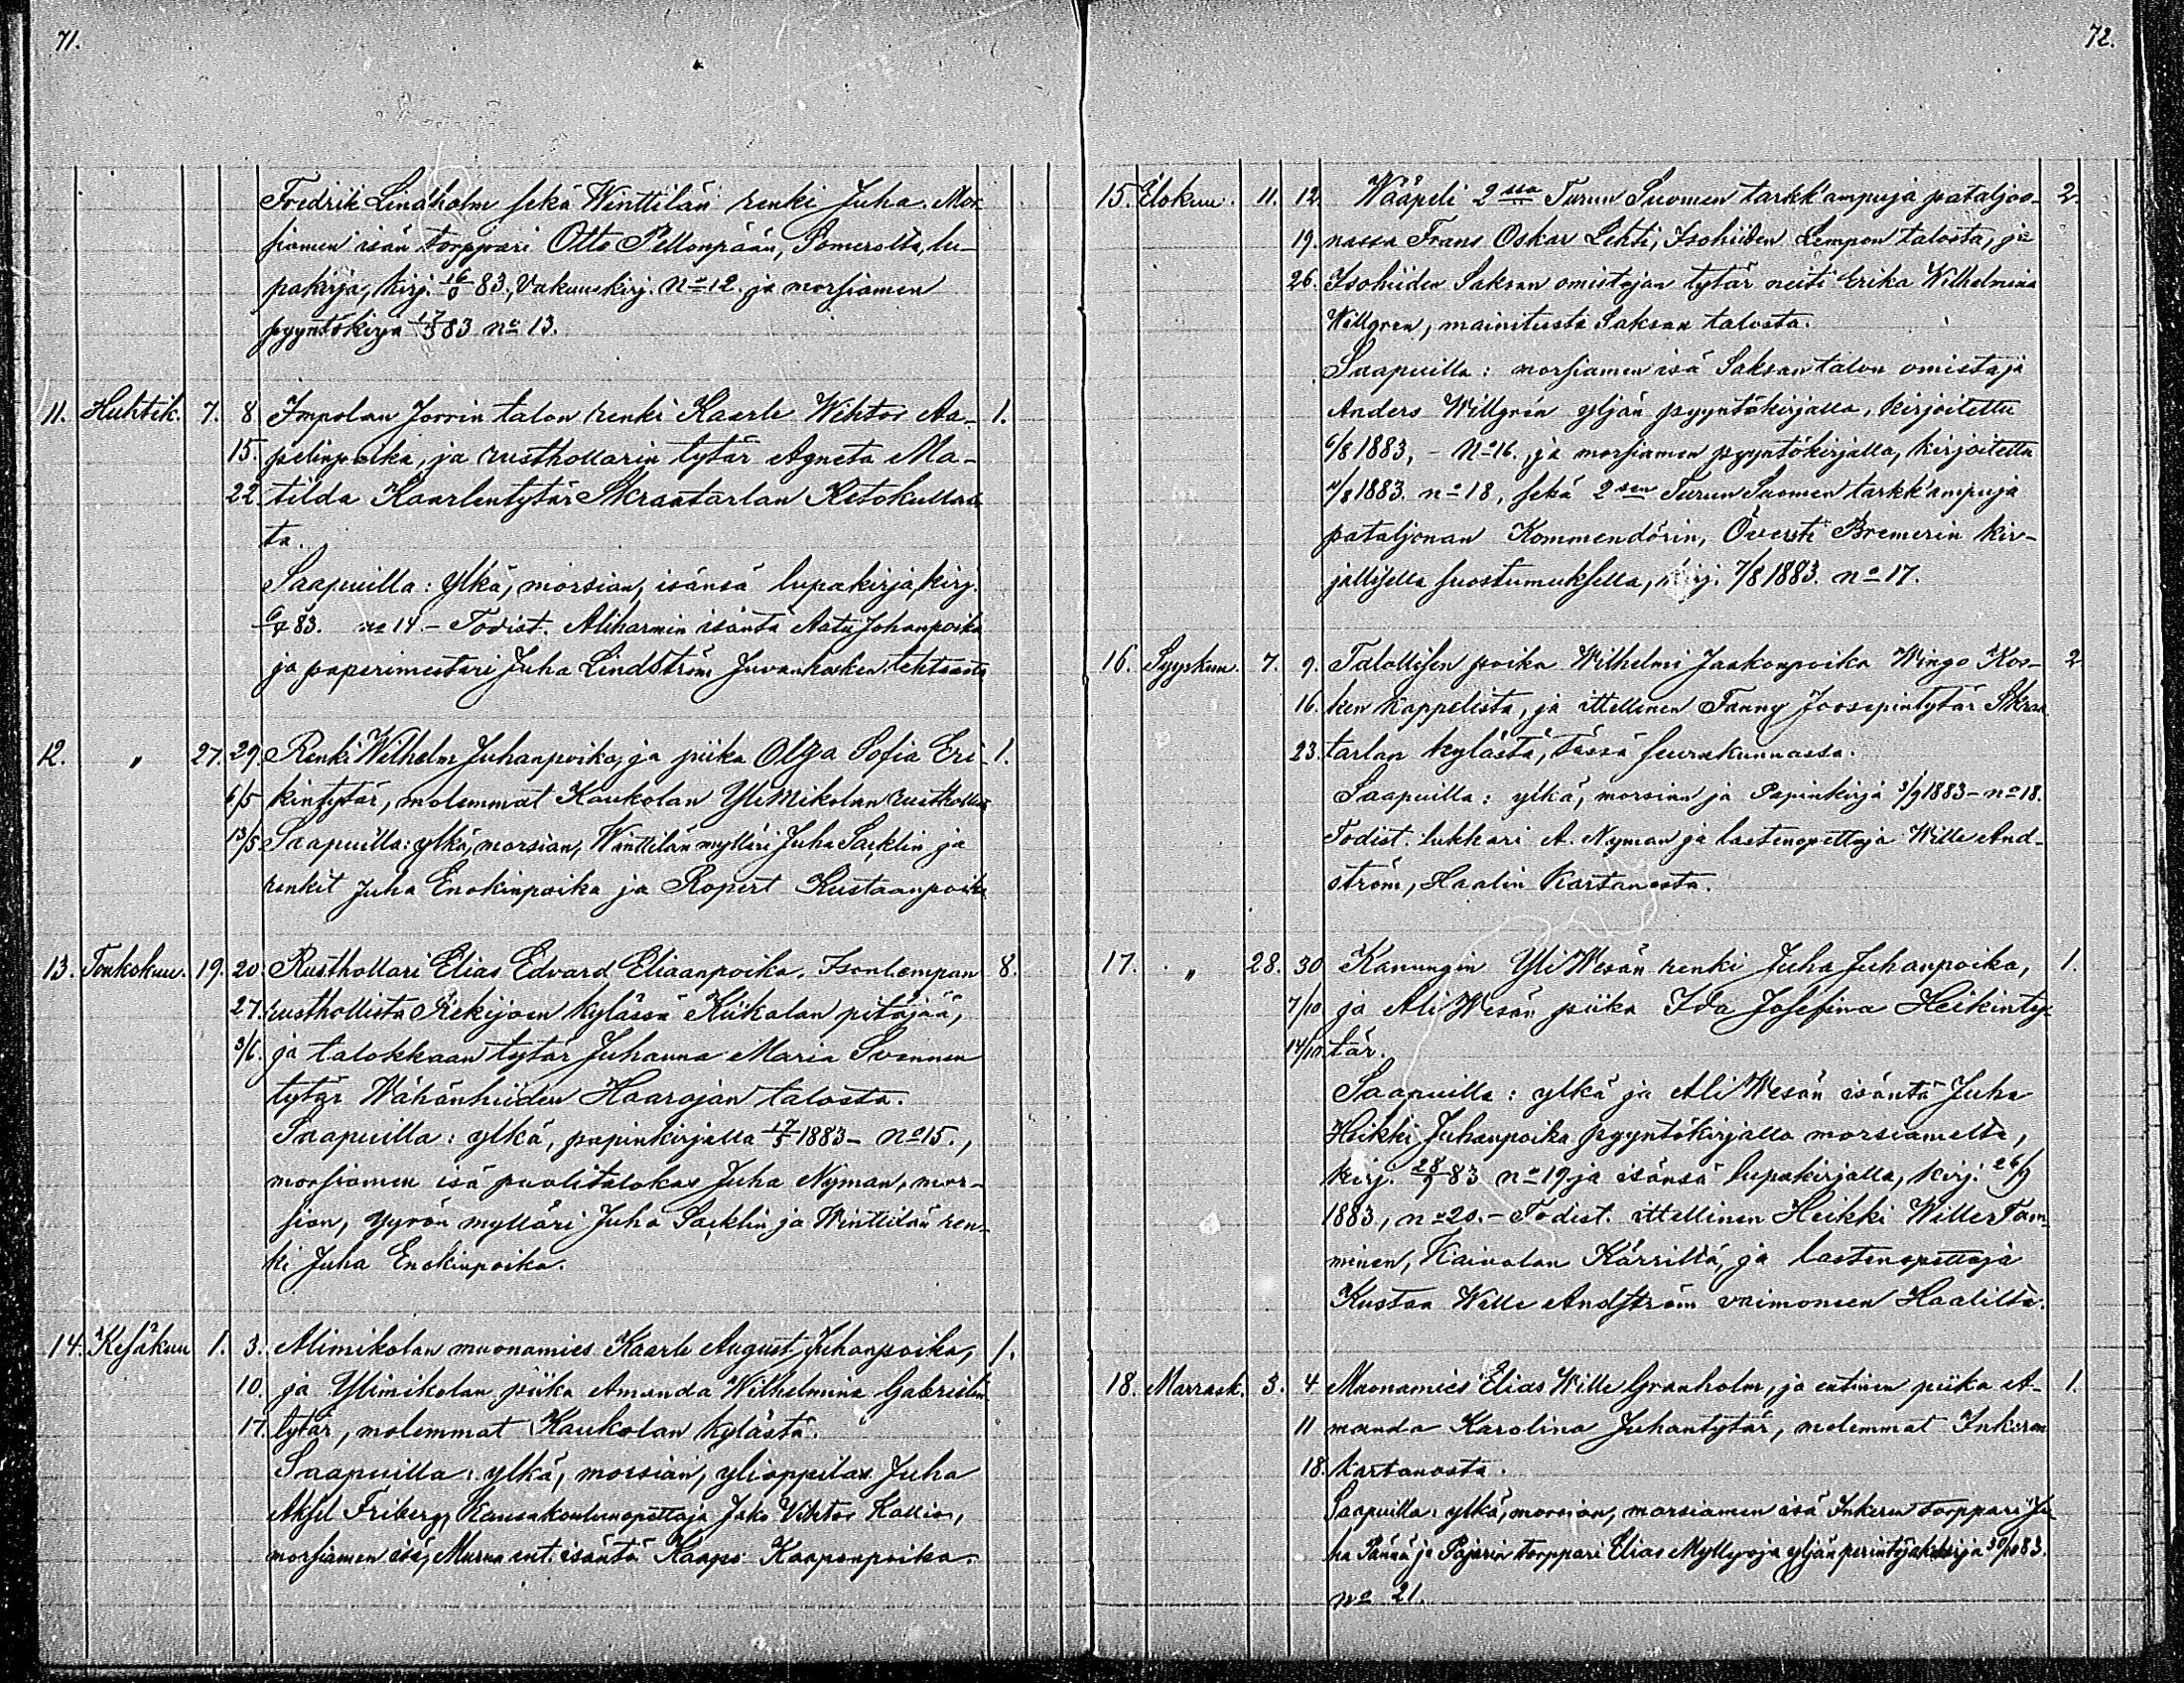 71.
Fredrik Lindholm sekä Winttilän renki Juha. Mor
siamen isän torppari Otto Pellonpään, Pomerolta, lu-
pakirja, kirj. 83., Vakuuskirj. No 12. ja morsiamen
pyyntökirja 17/3 83 no 13.
11. Huhtik. 7. 8. Impolan Jorrin talon renki Kaarle Wihtor Aa- 1.
15. pelinpoika, ja rusthollarin tytär Agneta Ma-
22. tilda Kaarlentytär Skraatarlan Ketokullas
ta.
Saapuilla: Ylkä, morsian, isänsä lupakirja, kirj.
83. no 14. - Todist. Aliharmin isäntä Aatu Johanpoika
ja paperimestari Juha Lindström Juvankosken tehtaasta
12. " 27. 29. Renki Wilhelm Juhanpoika, ja piika Olga Sofia Eri- 1.
6/5 kintytär, molemmat Kaukolan YliMikolan rustholl
13/5 Saapuilla: ylkä, morsian, Winttilän mylläri Juha Sacklin ja
renkit Juha Enokinpoika ja Ropert Kustaanpoika
13. Toukokuu. 19. 20. Rusthollari Elias Edvard Eliaanpoika. Isonlempan 8.
27. rusthollista Rekijoen kylässä Kiikalan pitäjää,
3/6. ja talokkaan tytär Juhanna Maria Svennin
tytär Wähänhiiden Haarojan talosta.
Saapuilla: ylkä, papinkirjalla 17/5 1883 - No 15.,
morsiamen isä puolitalokas Juha Nyman, mor-
sian, Syvön mylläri Juha Sacklin ja Winttilän ren-
ki Juha Enokinpoika.
14. Kesäkuu 1. 3. Alimikolan muonamies Kaarle August Juhanpoika, 1.
10. ja Ylimikolan piika Amanda Wilhelmina Gabrielin
17. tytär, molemmat Kaukolan kylästä.
Saapuilla: ylkä, morsian, ylioppilas Juha
Aksel Friberg, Kansakoulunopettaja Jako Vihtor Kallio,
morsiamen isä, Murun ent. isäntä Kaapo Kaaponpoika.
72.
15. Elokuu. 11. 12. Wääpeli 2ssa Turun Suomen tarkk'ampuja pataljoo- 2.
19. nassa Frans Oskar Lehti, Isohiiden Lempon talosta, ja
26. Isohiiden Saksan omistajan tytär neiti Erika Wilhelmina
Willgren, mainitusta Saksan talosta.
Saapuilla: morsiamen isä Saksan talon omistaja
Anders Willgrén yljän pyyntökirjalla, kirjoitettu
6/8 1883, - No 16. ja morsiamen pyyntökirjalla, kirjoitettu
/8 1883. no 18, sekä 2sen Turun Suomen tarkk'ampuja
pataljonan Kommendörin, Översti Bremerin kir-
jallisella suostumuksella, kirj. 7/8 1883. no 17.
16. Syyskuu. 7. 9. Talollisen poika Wilhelmi Jaakonpoika Wingo Kos- 2
16. ken kappelista, ja ittellinen Fanny Joosepintytär Skraa
23. tarlan kylästä, tässä seurakunnassa.
Saapuilla: ylkä, morsian ja Papinkirja 3/9 1883 - no 18.
Todist. lukkari A. Nyman ja lastenopettaja Wille And-
ström, Haalin Kartanosta.
17. " 28. 30 Kanungin YliWesän renki Juha Juhanpoika, 1.
7/10 ja AliWesän piika Ida Josefina Heikinty-
14/10 tär.
Saapuilla: ylkä ja AliWesän isäntä Juha
Heikki Juhanpoika pyyntökirjalla morsiamelta,
kirj. 28/9 83 no 19. ja isänsä lupakirjalla, kirj. 26/9
1883, no 20. - Todist. ittellinen Heikki Wille Tam-
minen, Kaivolan Kärriltä, ja lastenopettaja
Kustaa Wille Andström vaimoneen Haalilta.
18. Marrask. 3. 4 Muonamies Elias Wille Granholm, ja entinen piika A- 1.
11 manda Karolina Juhantytär, molemmat Inkeren
18. kartanosta.
Saapuilla: ylkä, morsian, morsiamen isä Inkeren torppari Ju
ha Pännä ja Pajarin torppari Elias Myllyoja yljän perintöjakokirja 30/10 83.
no 21.